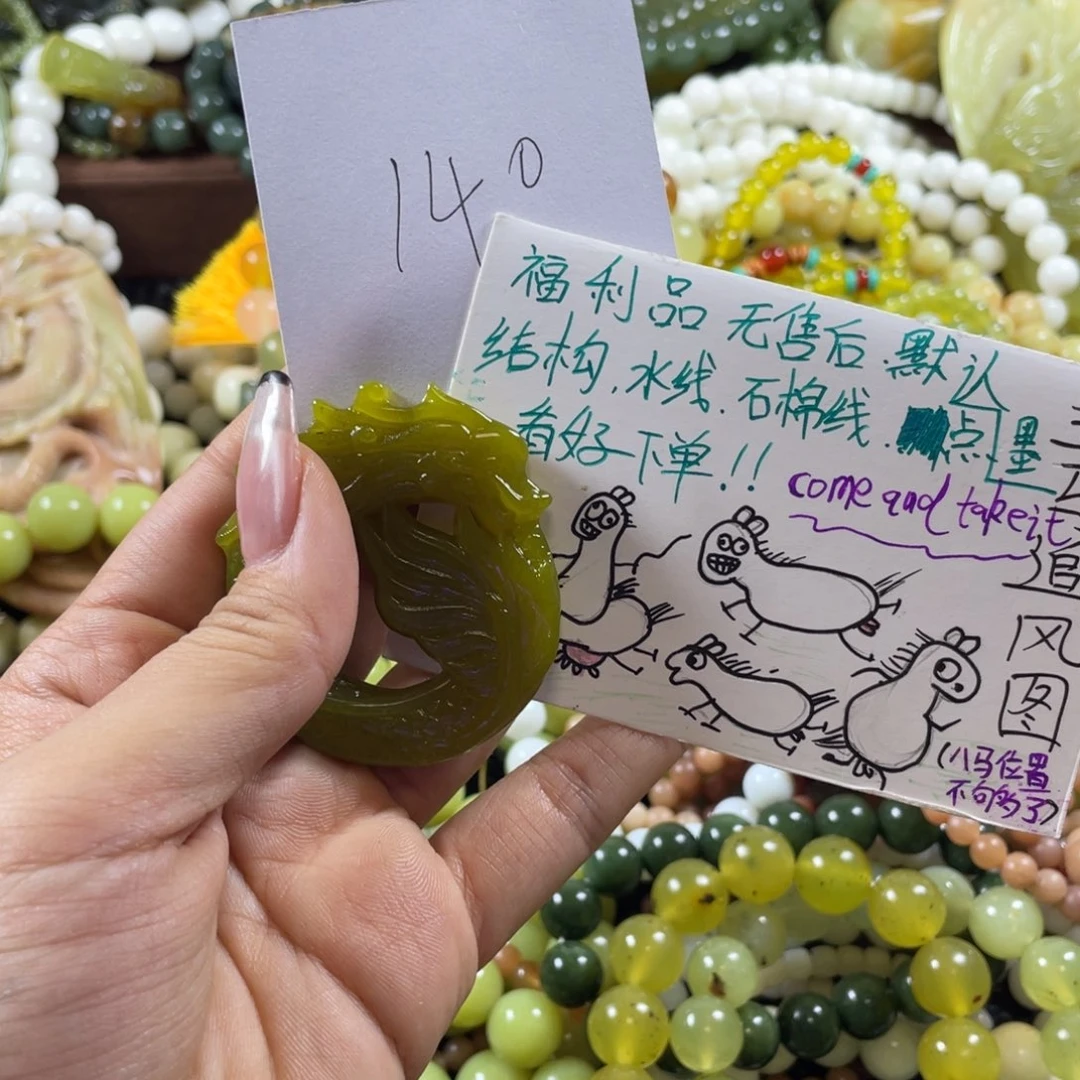 14⁰
福利品 无售后.默认
结构.水线.石棉线.点墨
看好下单!!
come and take it
追风图
(八马位置
不够了)